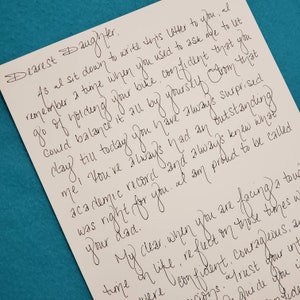 Dearest Daughter,
As I sit down to write this letter to you, I
remember a time when you used to ask me to let
go of holding your bike confident that you
could balance it all by yourself. From that
day, till today you have always surprised
me. You've always had an outstanding
academic record and always knew what
was right for you. I am proud to be called
your dad.
My dear, when you are facing a toug
time in life, reflect on those times w
were confident, courageous, a
trust your in
guide you i